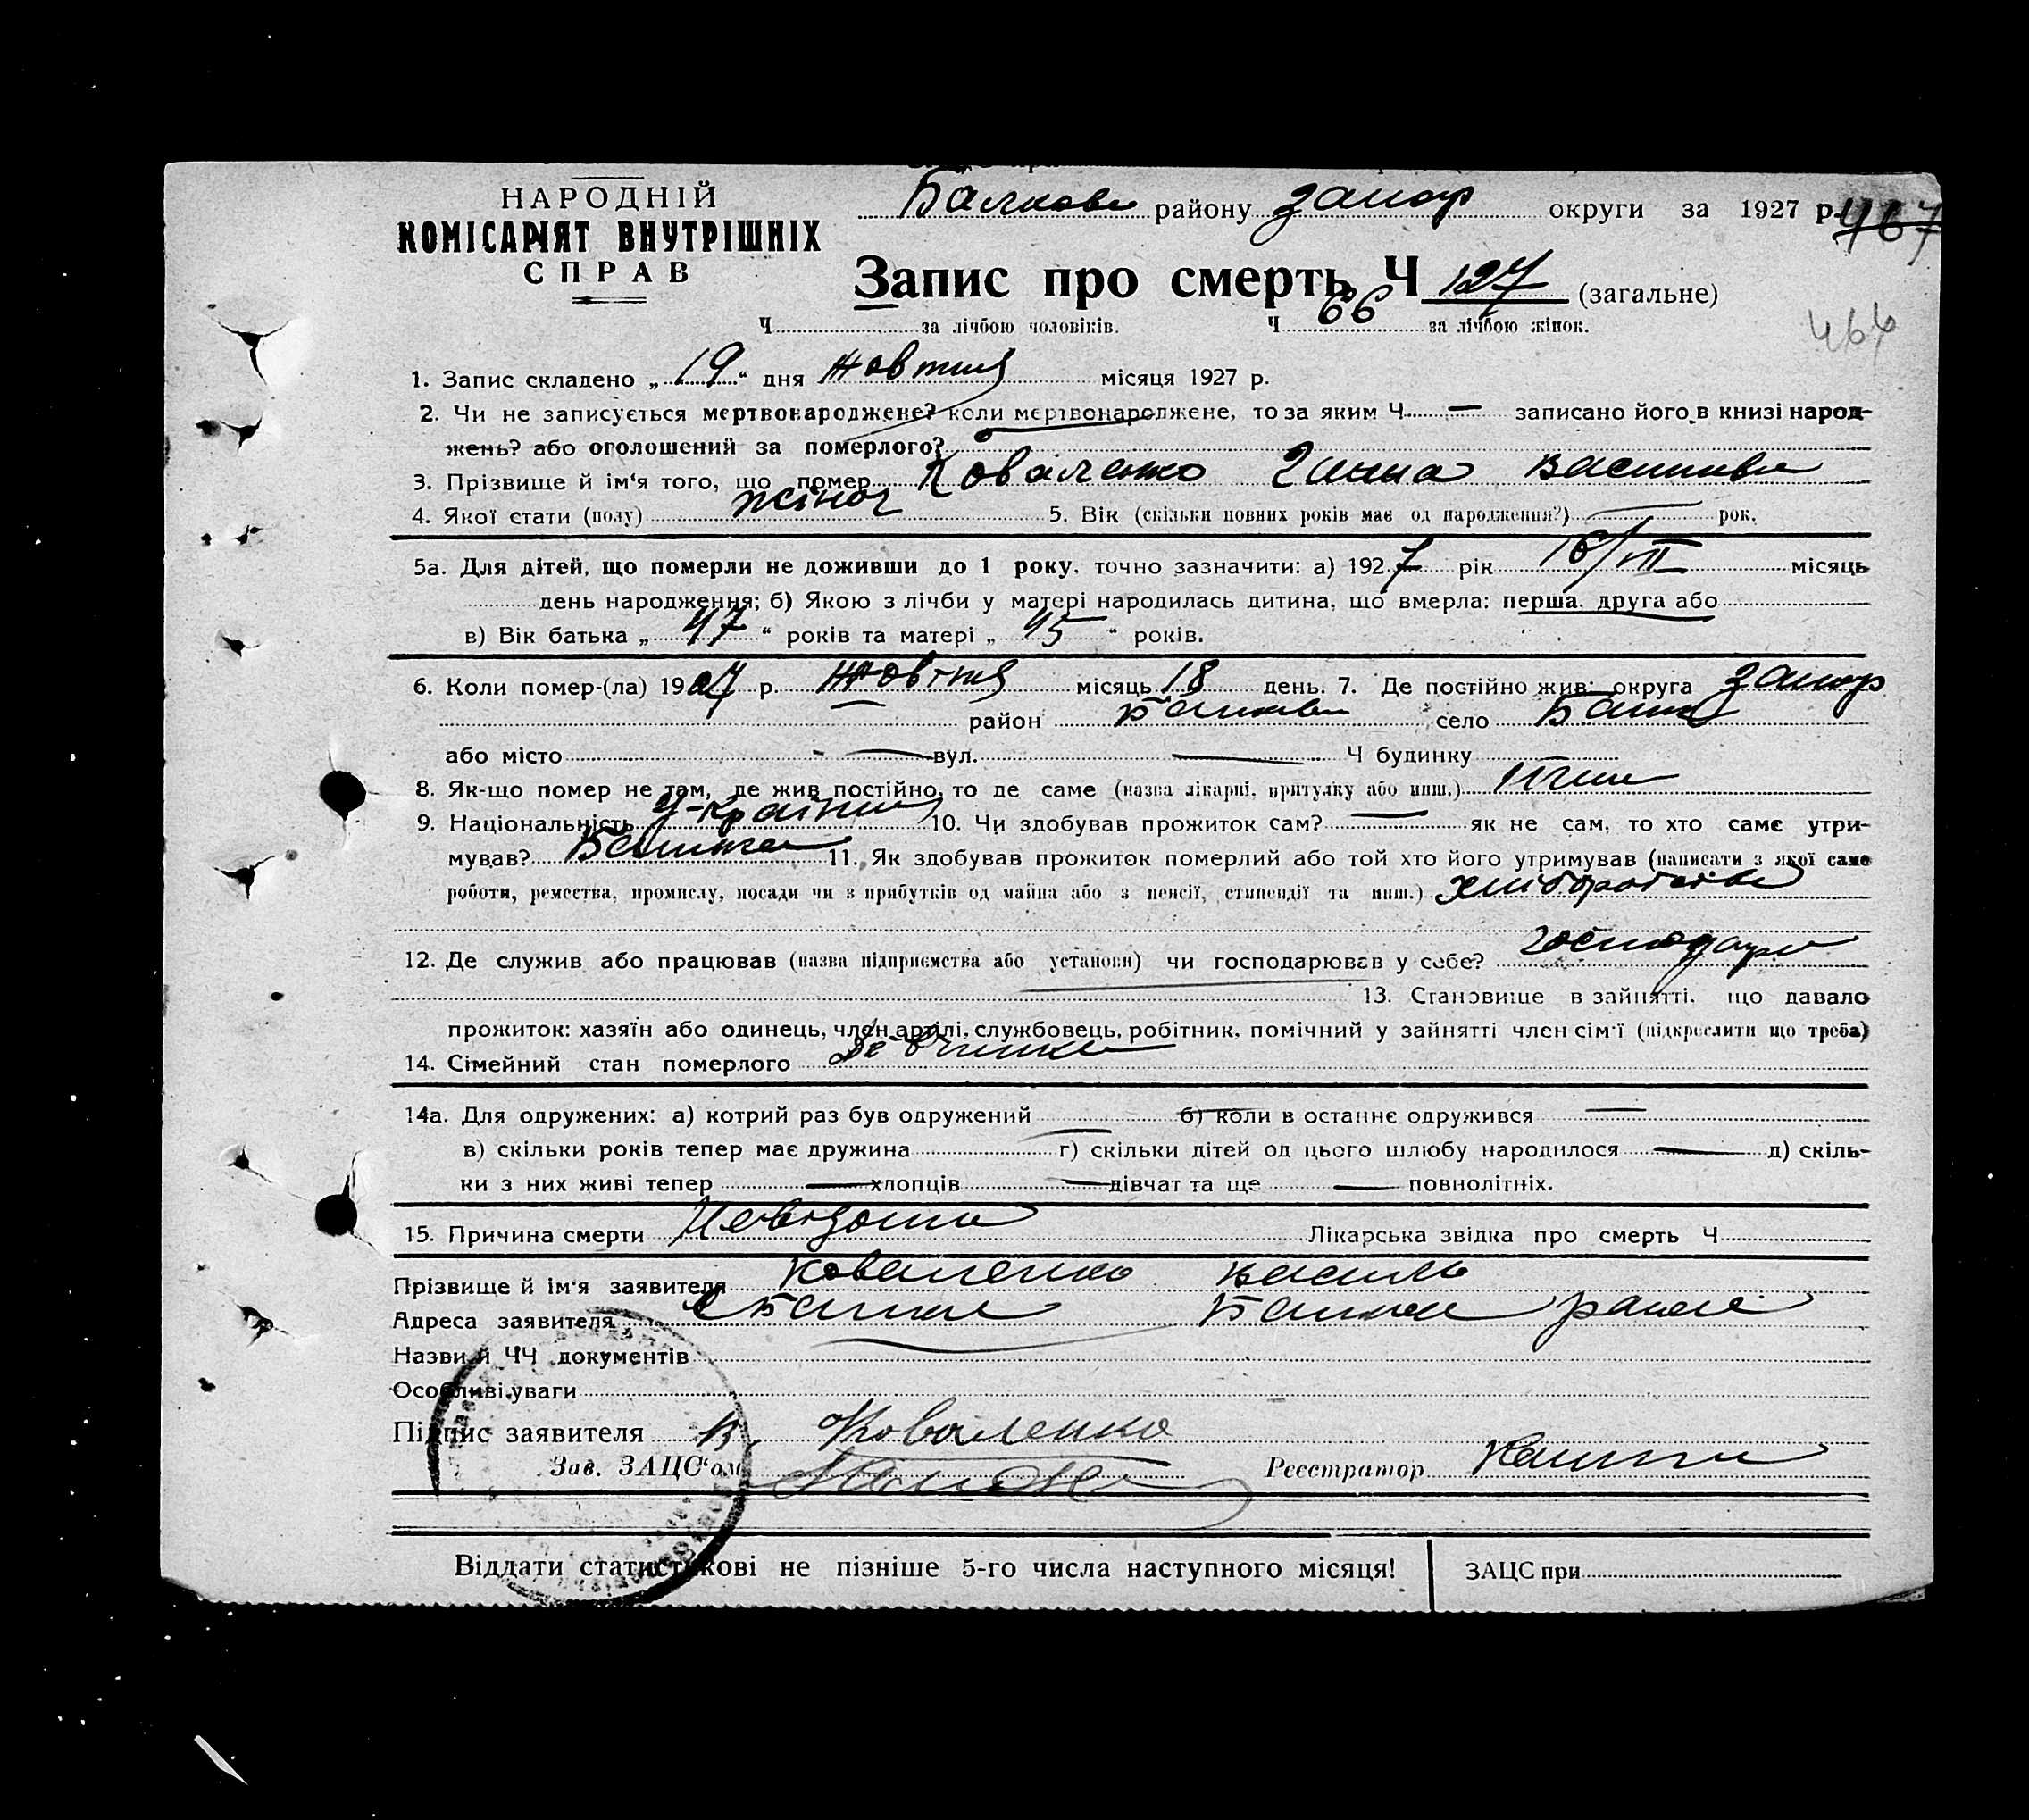 НАРОДНІЙ
КОМІСАРІЯТ ВНУТРІШНІХ
СПРАВ
району Запор округи за 1927 р. 467
Запис про смерть Ч 127 (загальне)
Ч за лічбою чоловіків. Ч 66 за лічбою жінок.
466
1. Запис складено „ 19 “ дня Жовтня місяця 1927 р.
2. Чи не записується мертвонароджене? коли мертвонароджене, то за яким Ч — записано його в книзі народ-
жень? або оголошений за померлого?
3. Прізвище й ім'я того, що помер Коваленко Ганна Василівн
4. Якої стати (полу) жіноч 5. Вік (скільки повних років має од народження?) — рок.
5а. Для дітей, що померли не доживши до 1 року, точно зазначити: а) 1927 рік 16/VII місяць
день народження; б) Якою з лічби у матері народилась дитина, що вмерла: перша, друга або
в) Вік батька „ 47 “ років та матері „ 45 “ років.
6. Коли помер-(ла) 1927 р. Жовтня місяць 18 день. 7. Де постійно жив: округа Запор
район село
або місто — вул. — Ч будинку
8. Як-що помер не там, де жив постійно, то де саме (назва лікарні, притулку або инш.)
9. Національність Україн 10. Чи здобував прожиток сам? — як не сам, то хто саме утри-
мував? Батько 11. Як здобував прожиток померлий або той хто його утримував (написати з якої саме
роботи, ремества, промислу, посади чи з прибутків од майна або з пенсії, стипендії та инш.) хліборобство
12. Де служив або працював (назва підприємства або установи) чи господарював у себе? господарю
13. Становище в зайнятті, що давало
прожиток: хазяїн або одинець, член артілі, службовець, робітник, помічний у зайнятті член сім'ї (підкреслити що треба)
14. Сімейний стан померлого
14а. Для одружених: а) котрий раз був одружений б) коли в останнє одружився —
в) скільки років тепер має дружина — г) скільки дітей од цього шлюбу народилося — д) скіль-
ки з них живі тепер — хлопців — дівчат та ще — повнолітніх.
15. Причина смерти Невідома Лікарська звідка про смерть Ч
Прізвище й ім'я заявителя Коваленко Василь
Адреса заявителя с Балки Балків району
Назви й ЧЧ документів
Особливі уваги
Підпис заявителя В. Коваленко
Зав. ЗАЦС'ом Реєстратор
Віддати статистикові не пізніше 5-го числа наступного місяця! ЗАЦС при